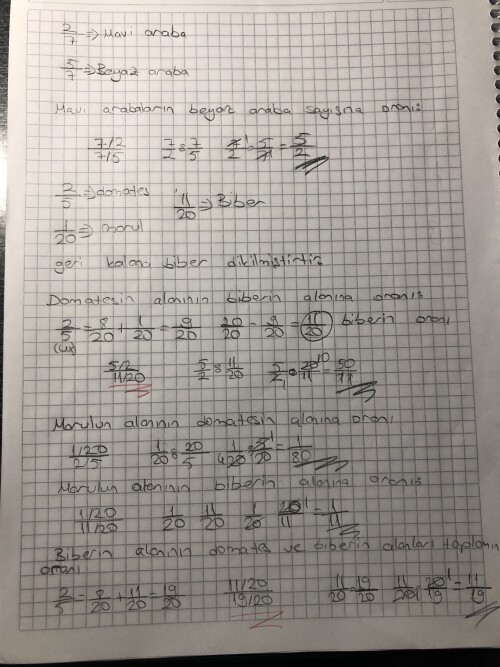 2/7 => Mavi araba
5/7 => Beyaz araba
Mavi arabaların beyaz araba sayısına oranı:
7/2 / 7/5   7/2 ÷ 7/5   7/2 · 5/7 = 5/2
2/5 => domates   11/20 => Biber
1/20 => marul
geri kalana biber dikilmiştir.
Domatesin alanının biberin alanına oranı:
2/5 = 8/20 + 1/20 = 9/20   20/20 - 9/20 = 11/20 biberin oranı
(4x)
5/2 / 11/20   5/2 ÷ 11/20   5/2 · 20/11 = 50/11
Marulun alanının domatesin alanına oranı
1/20 / 2/5   1/20 ÷ 20/5   1/20 · 5/20 = 1/80
Marulun alanının biberin alanına oranı:
1/20 / 11/20   1/20   11/20   1/20   20/11 = 1/11
Biberin alanının domates ve biberin alanları toplamına
oranı
2/5 = 8/20 + 11/20 = 19/20   11/20 / 19/20   11/20 ÷ 19/20   11/20 · 20/19 = 11/19